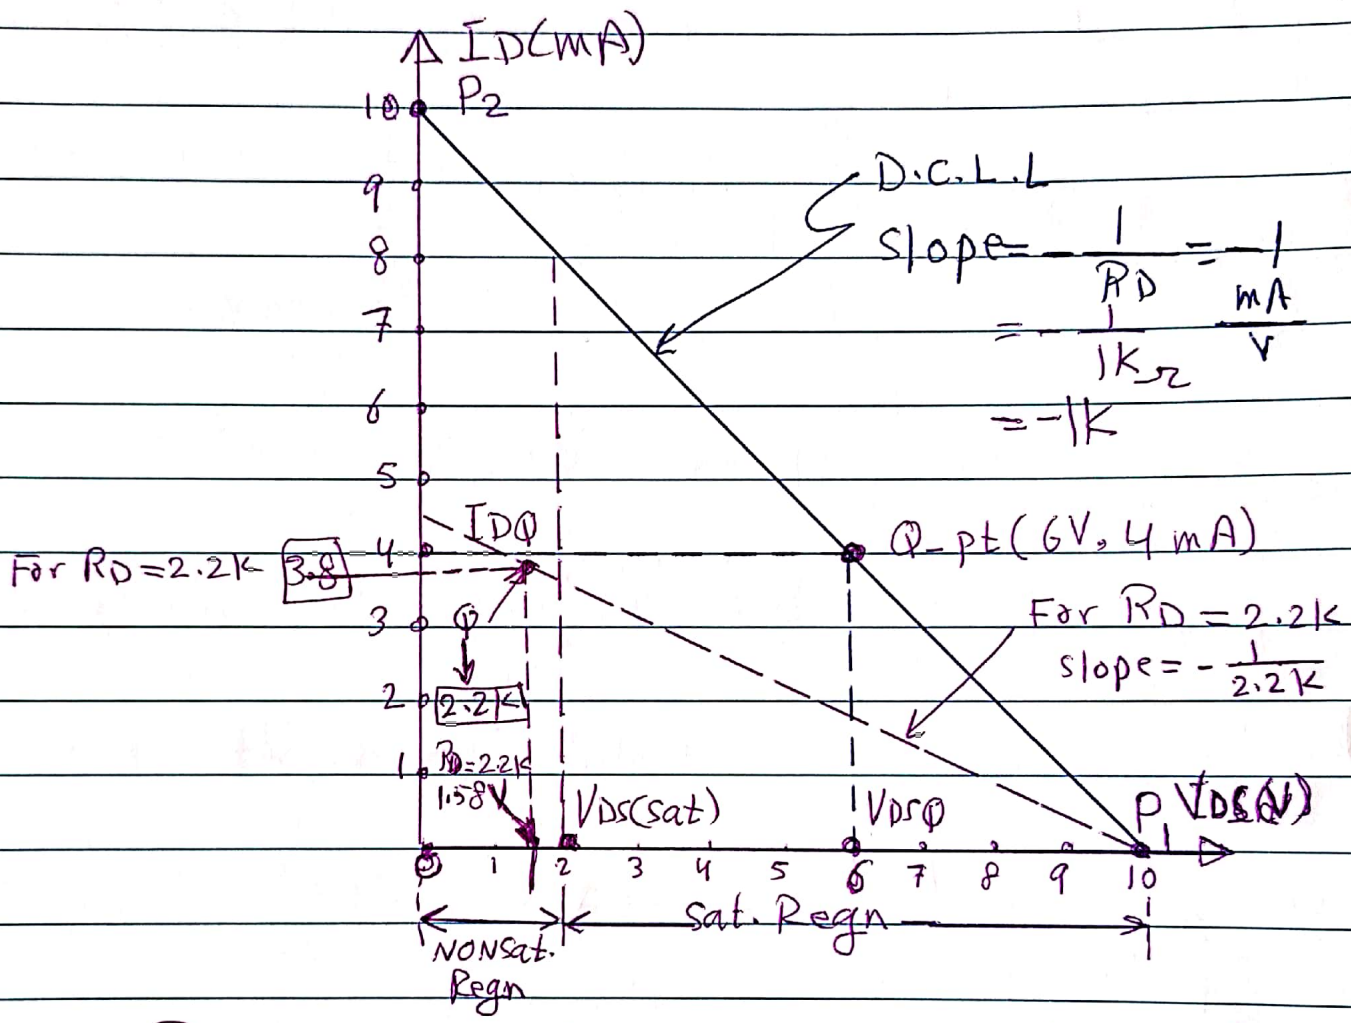 ID(mA)
10 P2
9
8
7
6
5
4
3
2
1
D.C.L.L
slope = - 1/RD = -1 mA/V
= - 1/1KΩ
= -1K
IDQ
Q-pt (6V, 4 mA)
For RD = 2.2K 3.8
Q
2.2K
For RD = 2.2K
slope = - 1/2.2K
RD=2.2K
1.58V
VDS(sat)
VDSQ
P1 VDS(V)
0 1 2 3 4 5 6 7 8 9 10
NONSat.
Regn
Sat. Regn